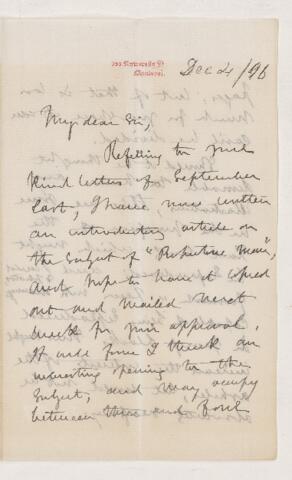 Montreal.
Dec 4/96
My dear Sir,
Referring to your
kind letters of September
last, I have now written
an introductory article on
the subject of "Primitive Man",
and hope to have it copied
out and mailed next
week for your approval.
It will form I think an
interesting opening to the
subject, and may occupy
between three and four